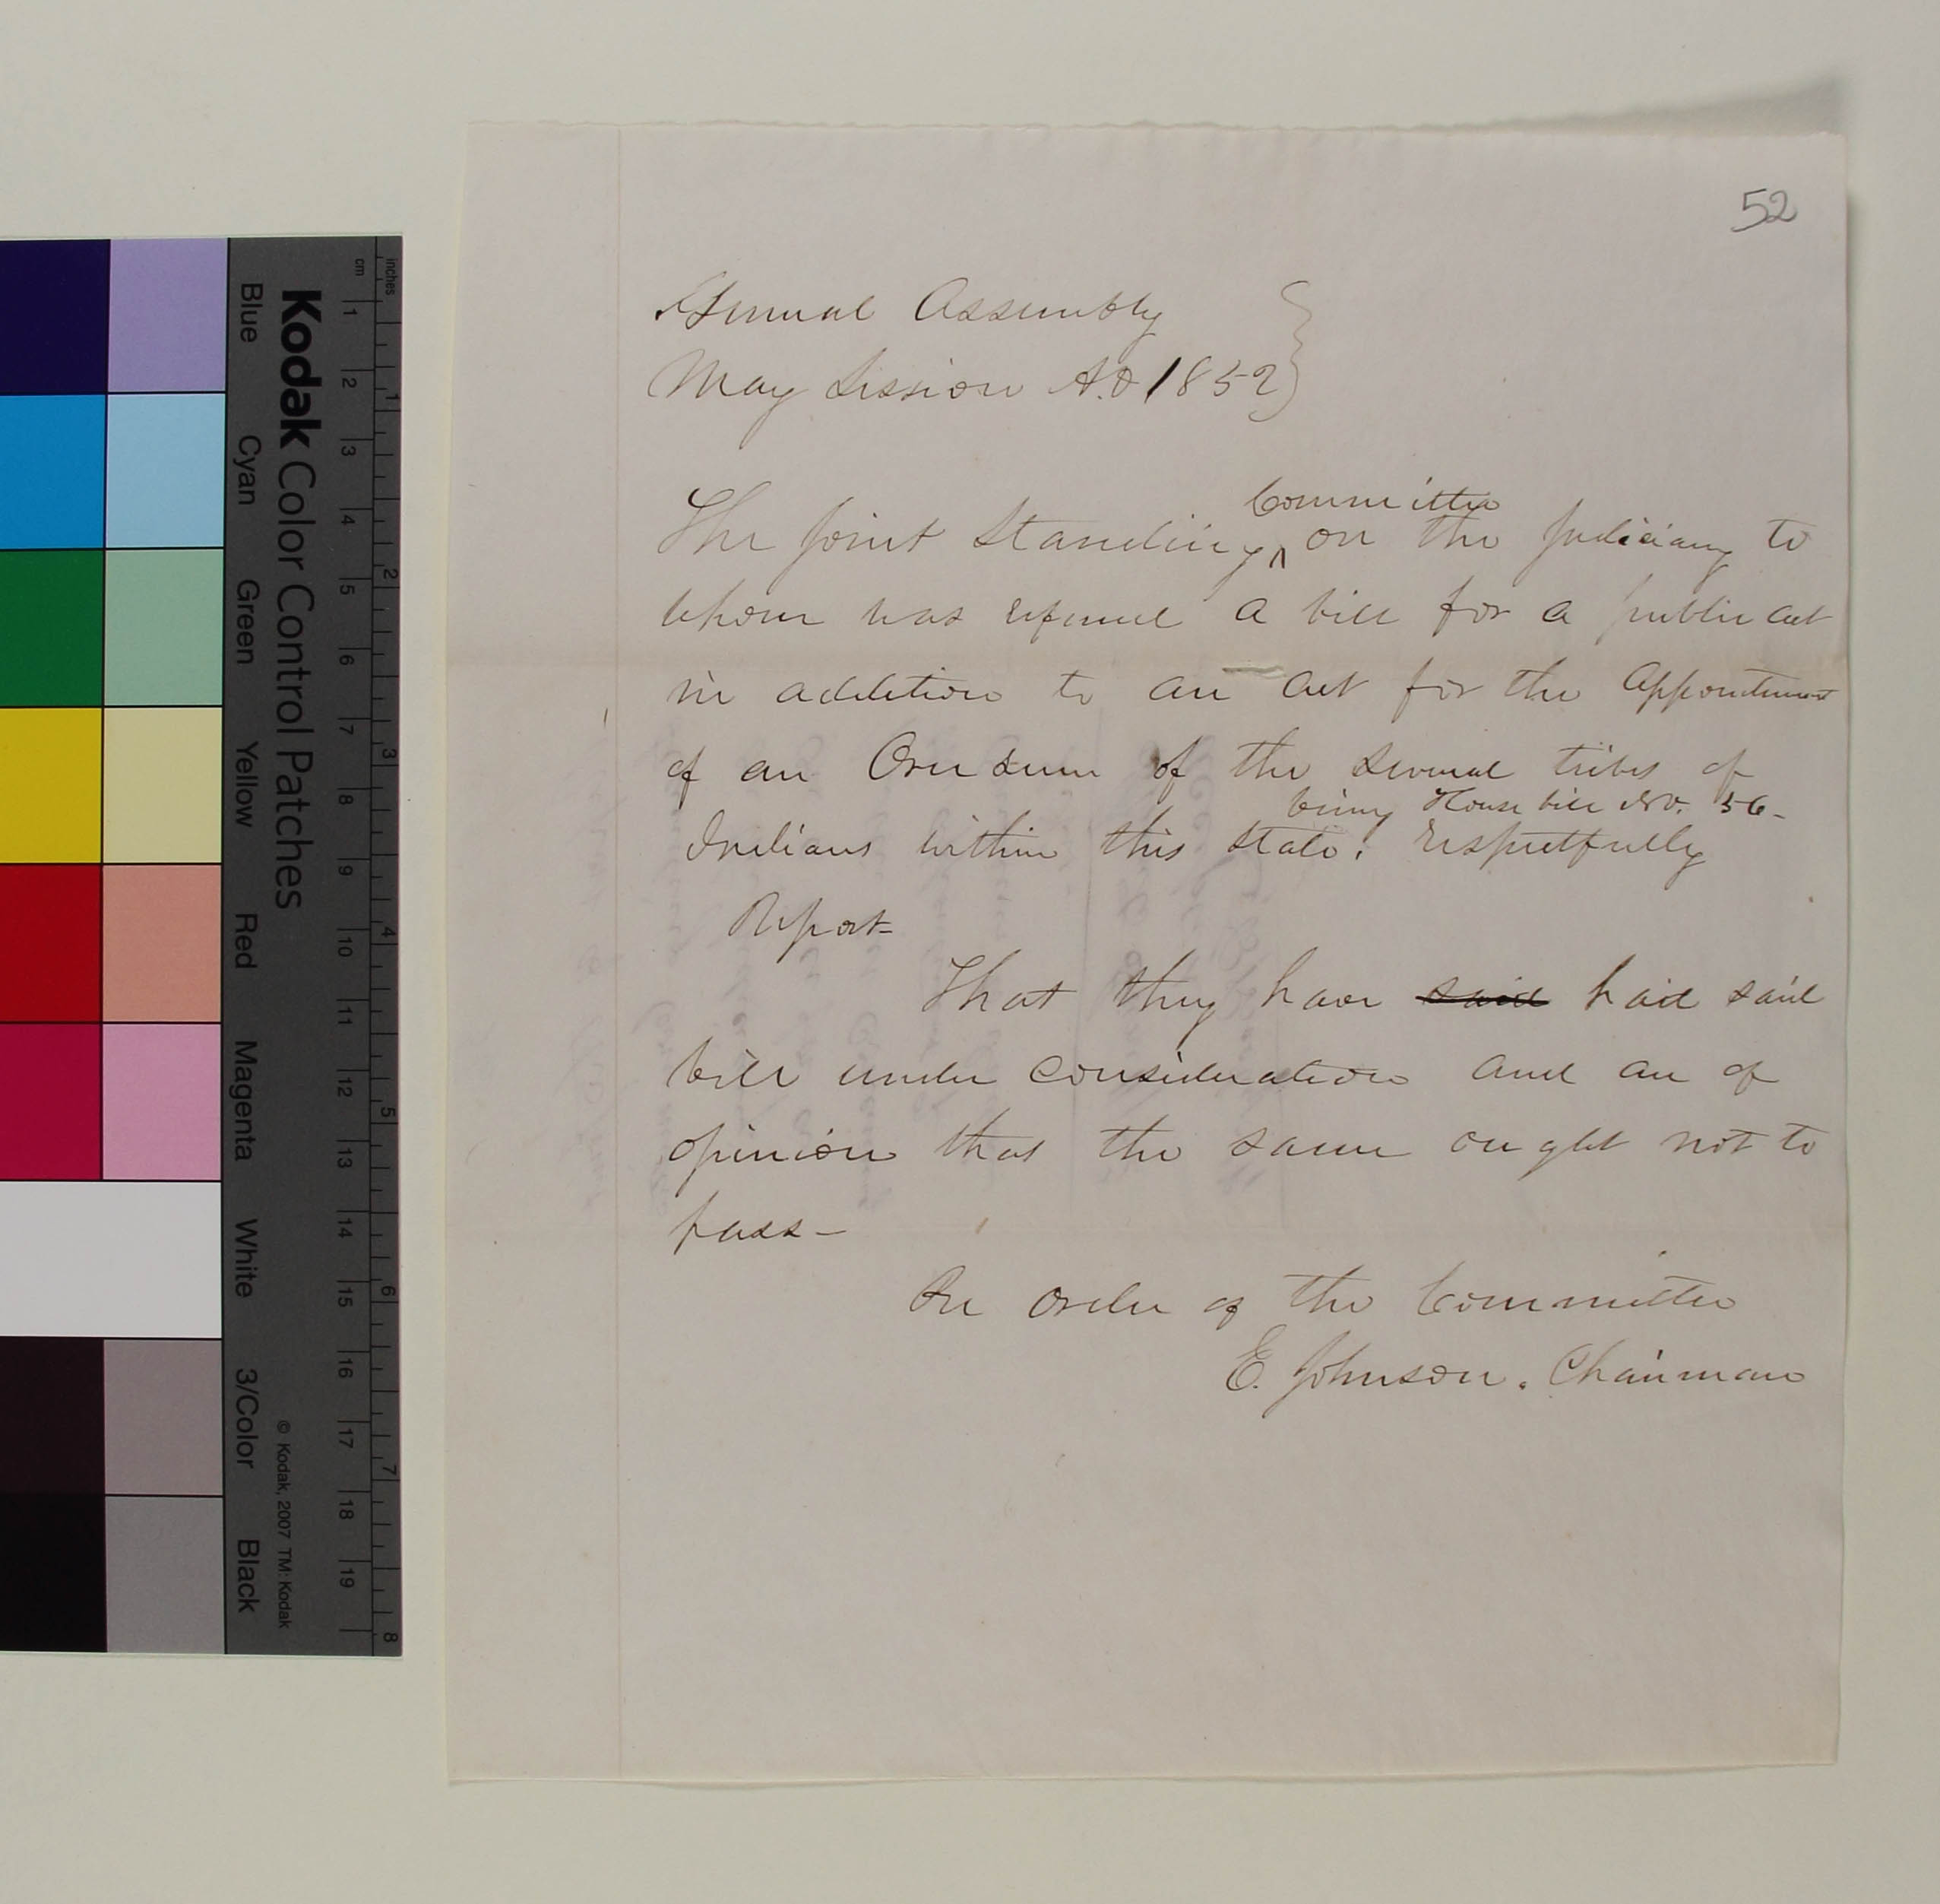 52
General Assembly
May Session A.D 1852
Committee
The Joint Standing ^ on the Judiciary to
whom was referred a bill for a public act
in addition to an Act for the Appointment
of an Overseer of the several tribes of
being House bill No. 56-
Indians within this State. respectfully
Report-
That they have said had said
bill under consideration and are of
opinion that the same ought not to
pass-
Per order of the Committee
E. Johnson. Chairman
Kodak Color Control Patches
Blue Cyan Green Yellow Red Magenta White 3/Color Black
© Kodak, 2007 TM: Kodak
cm 1 2 3 4 5 6 7 8 9 10 11 12 13 14 15 16 17 18 19
inches 1 2 3 4 5 6 7 8